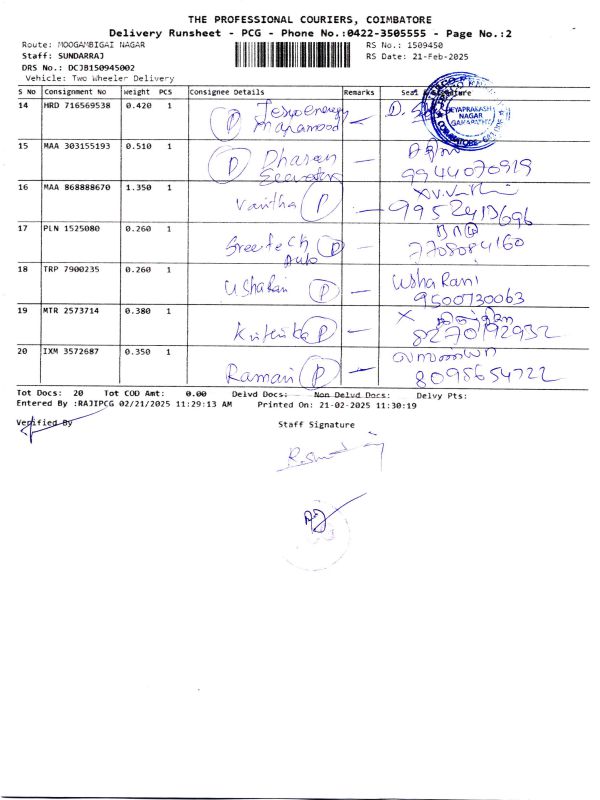 THE PROFESSIONAL COURIERS, COIMBATORE
Delivery Runsheet - PCG - Phone No.:0422-3505555 - Page No.:2
Route: MOOGAMBIGAI NAGAR RS No.: 1509450
Staff: SUNDARRAJ RS Date: 21-Feb-2025
DRS No.: DCJB150945002
Vehicle: Two Wheeler Delivery
S No Consignment No Weight PCS Consignee Details Remarks Seal Signature
14 HRD 716569538 0.420 1 P
JEYAPRAKASH
NAGAR
15 MAA 303155193 0.510 1 P Dharan
9944070919
16 MAA 868888670 1.350 1 Vanitha P
17 PLN 1525080 0.260 1 Greentech P
Auto 7708084160
18 TRP 7900235 0.260 1 Usharani P Usha Rani
9500730063
19 MTR 2573714 0.380 1 P X
8270192932
20 IXM 3572687 0.350 1 Ramani P
8098654722
Tot Docs: 20 Tot COD Amt: 0.00 Delvd Docs: Non Delvd Docs: Delvy Pts:
Entered By :RAJIPCG 02/21/2025 11:29:13 AM Printed On: 21-02-2025 11:30:19
Verified By Staff Signature